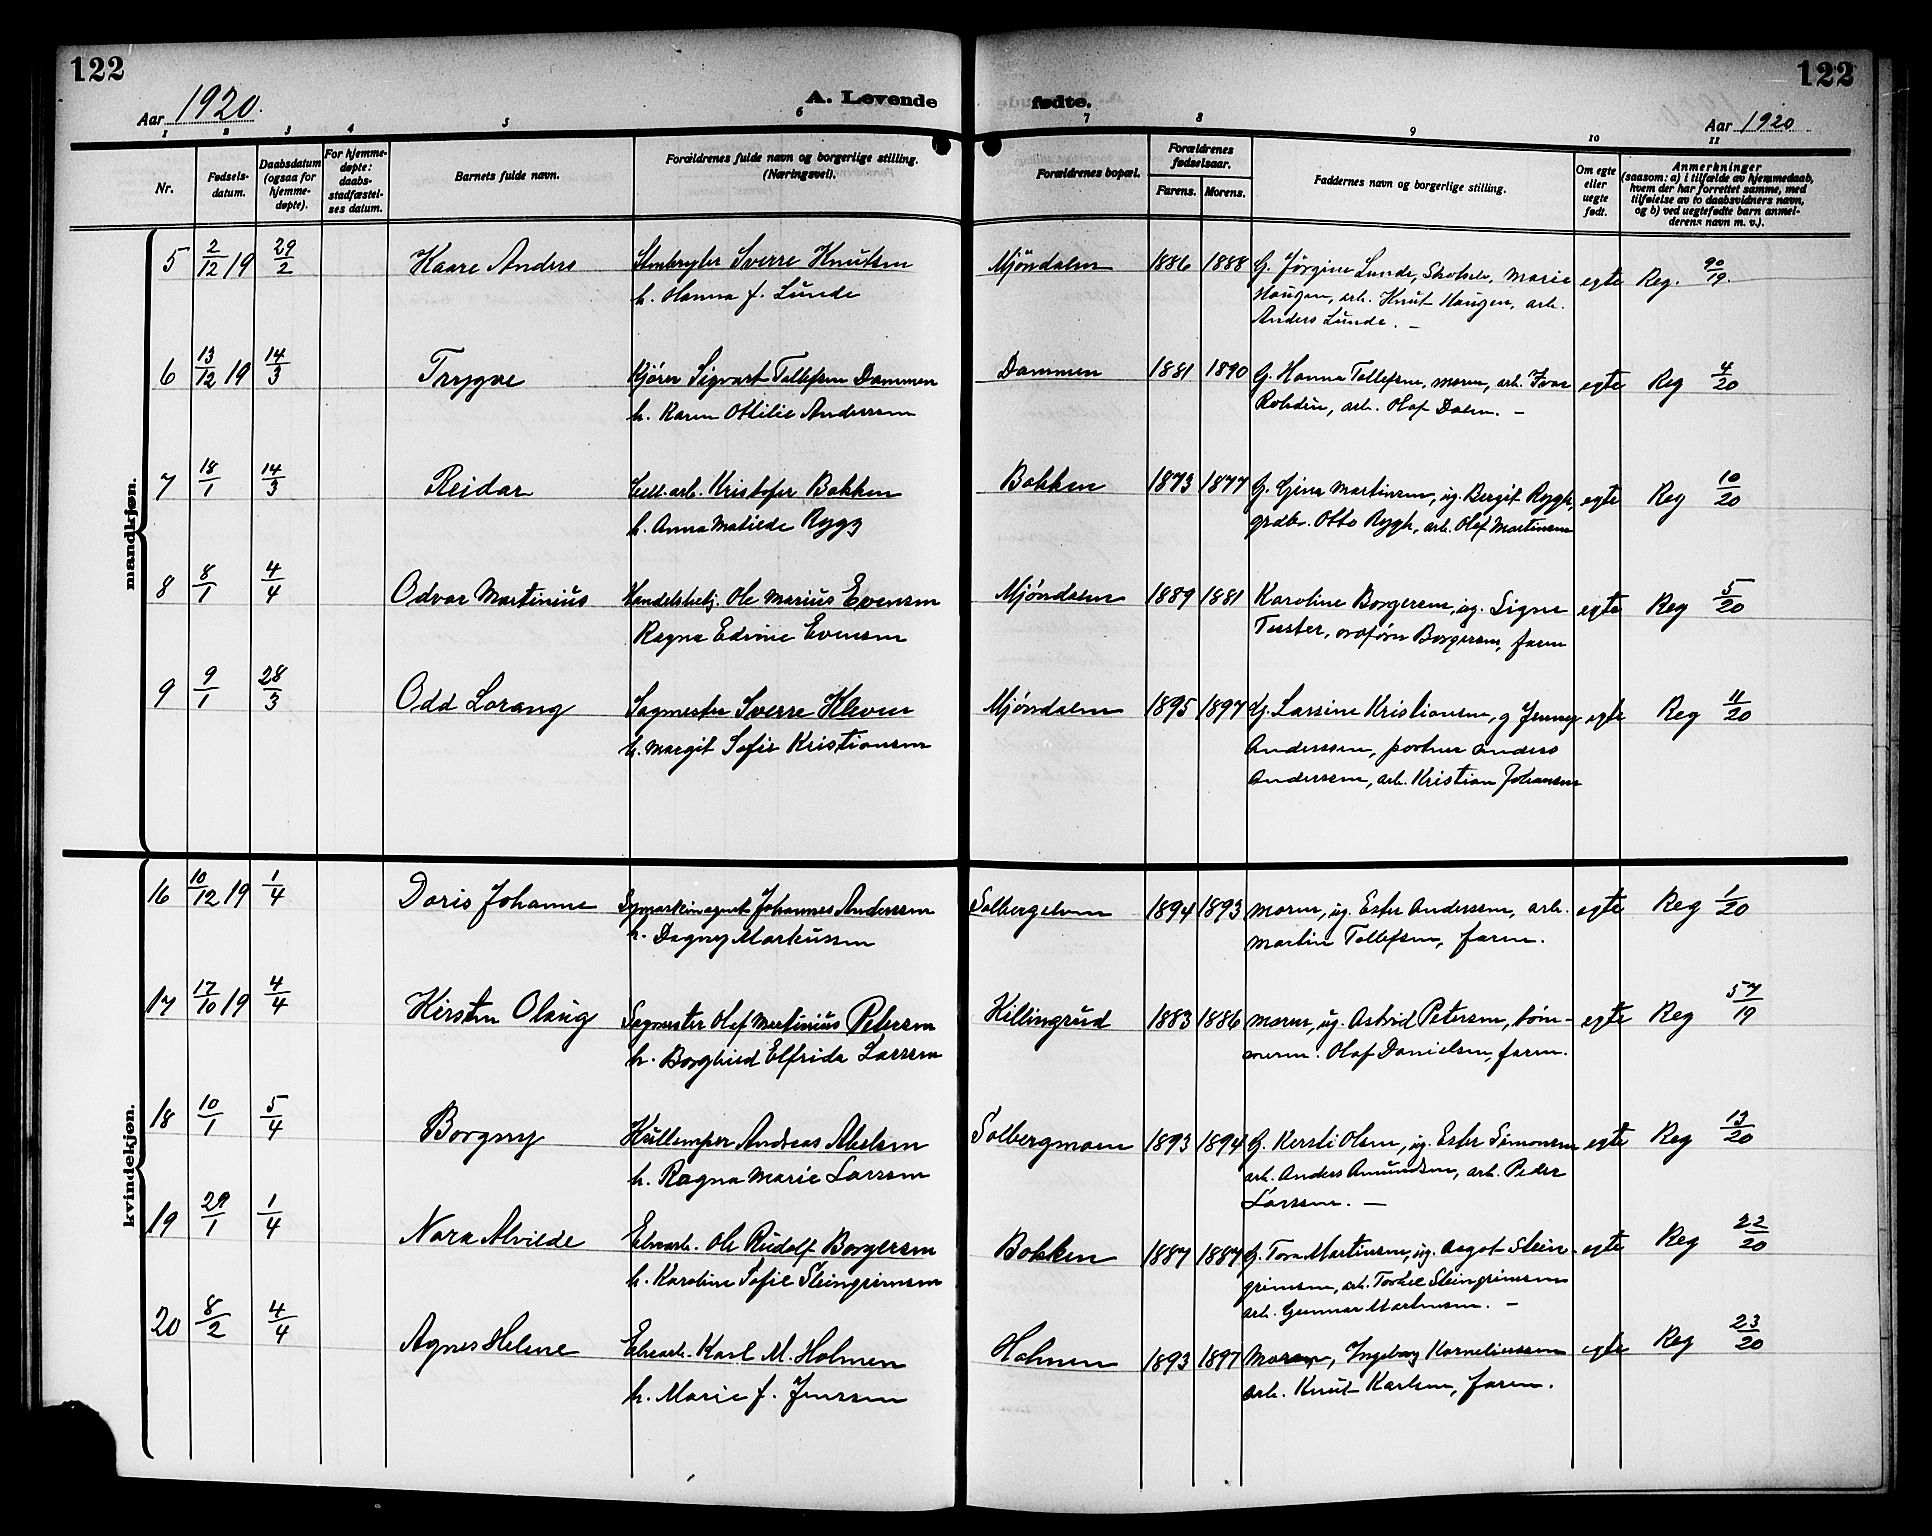 122
Aar 1920.
A. Levende
1 2 3 4 5 6
Nr.
Fødsels-
datum.
Daabsdatum
(ogsaa for
hjemme-
døpte).
For hjemme-
døpte:
daabs-
stadfæstel-
ses datum.
Barnets fulde navn.
Forældrenes fulde navn og borgerlige stilling.
(Næringsvei).
mandkjøn.
5 2/12 19 29/2 Kaare Anders Sverre Knutsen
h. Hanna f. Lunde
6 13/12 19 14/3 Trygve Kjører Sigvart Tollefsen Dammen
h. Karen Ottilie Anderssen
7 18/1 14/3 Reidar Cell. arb. Kristofer Bakken
h. Anna Matilde Rygg
8 8/1 4/4 Odvar Martinius Handelsbetj. Ole Marius Evensen
Ragna Edvine Evensen
9 9/1 28/3 Odd Lorang Sagmester Sverre Kleven
h. Margit Sofie Kristiansen
kvindekjøn.
16 10/12 19 1/4 Doris Johanne Symaskinagent Johannes Anderssen
h. Dagny Markussen
17 17/10 19 4/4 Kirsten Olaug Sagmester Olaf Martinius Petersen
h. Borghild Elfrida Larssen
18 10/1 5/4 Borgny Kullemper Andreas Abelsen
h. Ragna Marie Larssen
19 29/1 1/4 Nora Alvilde Elvearb. Ole Rudolf Borgersen
h. Karoline Sofie Steingrimsen
20 8/2 4/4 Agnes Helene Elvearb. Karl M. Holmen
h. Marie f. Jenssen
122
fødte.
Aar 1920
7 8 9 10 11
Forældrenes bopæl.
Forældrenes
fødselsaar.
Farens. Morens.
Faddernes navn og borgerlige stilling.
Om egte
eller
uegte
født.
Anmerkninger
(saasom: a) i tilfælde av hjemmedaab,
hvem der har forrettet samme, med
tilføielse av to daabsvidners navn,
og b) ved uegtefødte barn anmel-
derens navn m. v.).
Mjøndalen 1886 1888 G. Jørgine Lunde, Skotselv, Marie egte Reg. 90/19.
Haugen, arb. Knut Haugen, arb.
Anders Lunde. —
Dammen 1881 1890 G. Hanna Tollefsen, moren, arb. Ivar egte Reg 4/20
arb. Olaf Dalen. —
Bakken 1873 1877 G. Gina Martinsen, ug. Bergit Rygh, egte Reg 10/20
grdbr. Otto Rygh, arb. Olaf Martinsen
Mjøndalen 1889 1881 Karoline Borgersen, ug. Signe egte Reg 5/20
Borgersen, faren
Mjøndalen 1895 1897 G. Larsine Kristiansen, g. Jenny egte Reg 11/20
Anderssen, portner Anders
Anderssen, arb. Kristian Johansen
Solbergelven 1894 1893 moren, ug. Ester Anderssen, arb. egte Reg 1/20
Martin Tollefsen, faren.
Killingrud 1883 1886 moren, ug. Astrid Petersen, tøm- egte Reg 57/19
merm. Olaf Danielsen, faren.
Solbergmoen 1893 1894 G. Kersti Olsen, ug. Ester Simonsen egte Reg 13/20
arb. Anders Amundsen, arb. Peder
Larssen. —
Bakken 1887 1887 G. Tora Martinsen, ug. Aagot Stein- egte Reg 22/20
grimsen, arb. Torkel Steingrimsen
arb. Gunnar Martinsen. —
Holmen 1893 1897 Moren, Ingeborg Korneliussen egte Reg 23/20
arb. Knut Karlsen, faren.